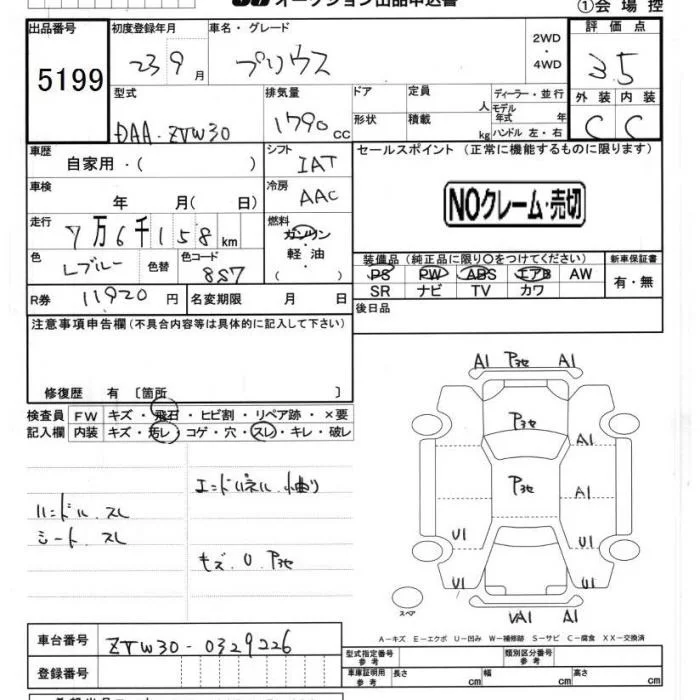 オークション出品申込書
①会場控
出品番号
5199
初度登録年月
23 9 月
車名・グレード
プリウス
2WD
・
4WD
評価点
3.5
外装 内装
C C
型式
DAA-ZVW30
排気量
1790 cc
ドア
形状
定員
人
積載
kg
ディーラー・並行
モデル
年式 年
ハンドル 左・右
車歴
自家用・( )
シフト
IAT
車検
年 月( 日)
冷房
AAC
走行
7万6千158km
燃料
ガソリン
・
軽油
・
( )
色
Lブルー
色替
色コード
8S7
R券
11920円
名変期限 月 日
セールスポイント(正常に機能するものに限ります)
NOクレーム・売切
装備品(純正品に限り○をつけてください)
PS PW ABS エアB AW
SR ナビ TV カワ
新車保証書
有・無
後日品
注意事項申告欄(不具合内容等は具体的に記入して下さい)
修復歴 有 〔箇所 〕
検査員
記入欄
FW キズ・飛石・ヒビ割・リペア跡・×要
内装 キズ・汚レ・コゲ・穴・スレ・キレ・破レ
ハンドル スレ
シート スレ
エンドパネル 曲り
キズ U P3セ
A1 P3セ A1
P3セ
A1
P3セ
A1
U1 U1
U1 U1
UA1 A1
スペア
A−キズ E−エクボ U−凹み W−補修跡 S−サビ C−腐食 XX−交換済
車台番号
ZVW30-0329226
登録番号
型式指定番号
参考
類別区分番号
参考
車庫証明用
参考
長さ cm
幅 cm
高さ cm